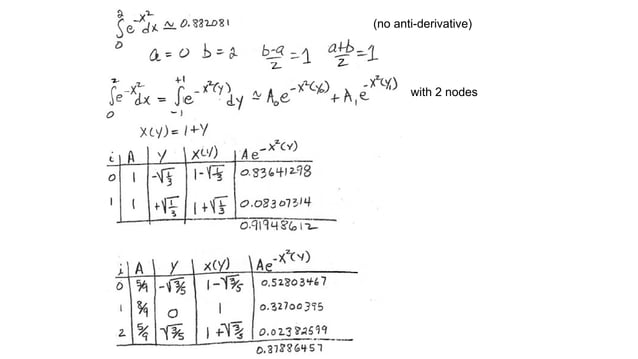 ∫₀² e^-x² dx ≃ 0.882081 (no anti-derivative)
a=0 b=2 (b-a)/2 = 1 (a+b)/2 = 1
∫₀² e^-x² dx = ∫₋₁⁺¹ e^-x²(y) dy ≃ A₀e^-x²(y₀) + A₁e^-x²(y₁) with 2 nodes
x(y) = 1+y
i | A | y | x(y) | Ae^-x²(y)
0 | 1 | -√(1/3) | 1-√(1/3) | 0.83641298
1 | 1 | +√(1/3) | 1+√(1/3) | 0.08307314
0.91948612
i | A | y | x(y) | Ae^-x²(y)
0 | 5/9 | -√(3/5) | 1-√(3/5) | 0.52803467
1 | 8/9 | 0 | 1 | 0.32700395
2 | 5/9 | √(3/5) | 1+√(3/5) | 0.02382599
0.87886457